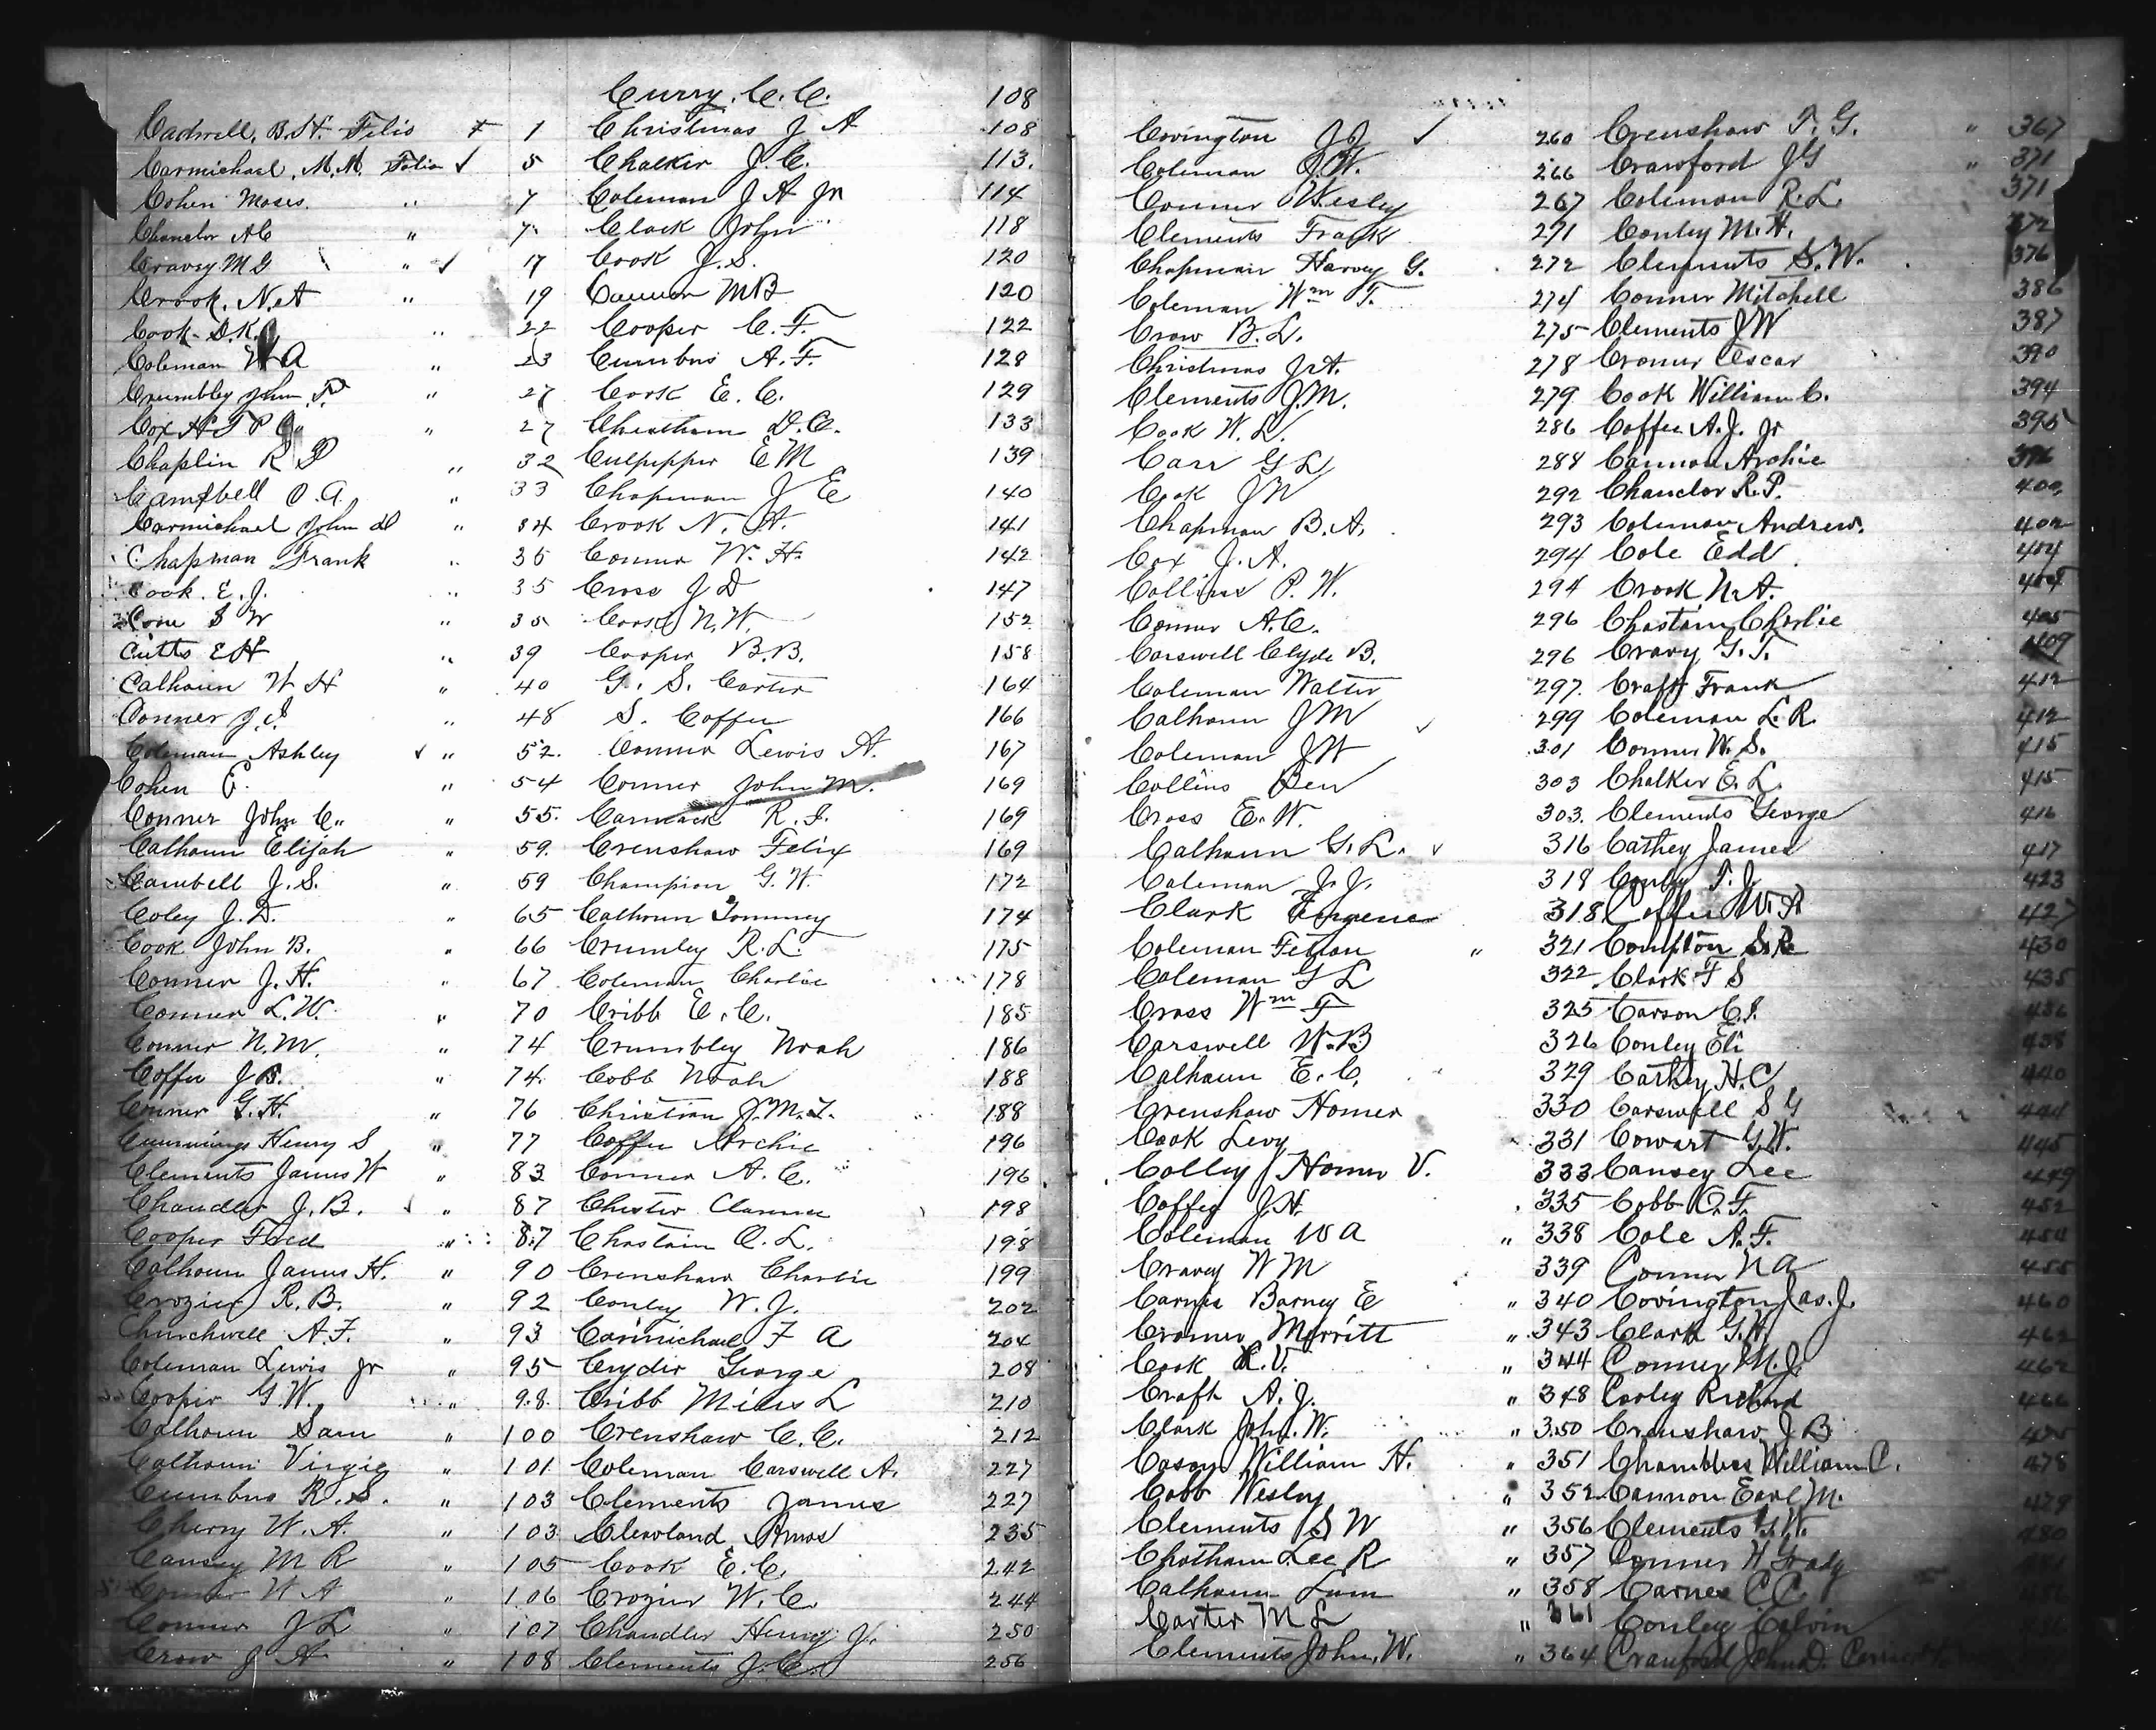 Cadwell, B.H. Folio 1
Carmichael, M.M. Folio ✓ 5
Cohen Moses " 7
Chanclor A C " 7
Cravey M G " ✓ 17
Crook, N. A " 19
Cook D.K. " 22
Coleman W A " 23
Crumbley John " 27
Cox " 27
Chaplin R P " 32
Campbell O.A. " 33
Carmichael John D " 34
Chapman Frank " 35
Cook. E. J. " 35
S W " 35
Cutts E H " 39
Calhoun W H " 40
Conner J. I. " 48
Coleman Ashley ✓ " 52
Cohen " 54
Conner John C. " 55
Calhoun Elijah " 59
Cambell J. S. " 59
Coley J. D. " 65
Cook John B. " 66
Conner J. H. " 67
Conner L.W. " 70
Conner N.M. " 74
Coffee J B. " 74
Conner G. H. " 76
Cummings Henry S " 77
Clements James W " 83
Chandler J. B. ✓ " 87
Cooper Fred " 87
Calhoun James H. " 90
Crozier R. B. " 92
Churchwell A. F. " 93
Coleman Lewis Jr " 95
Cooper G. W. " 98
Calhoun Sam " 100
Calhoun Virgie " 101
Cumbus R. S. " 103
Cherry W. A. " 103
Causey M R " 105
Conner W A " 106
Conner J L " 107
Crow J A " 108
Curry. C. C. 108
Christmas J A 108
Chalker J. C. 113
Coleman J A Jr 114
Clark John 118
Cook J. S. 120
Cannon M B 120
Cooper C. F. 122
Cumbus A. F. 128
Cook E. C. 129
Cheatham D. C. 133
Culpepper E M 139
Chapman J E 140
Crook N. A. 141
Conner W. H. 142
Cross J D 147
Cook N. W. 152
Cooper B. B. 158
G. S. Carter 164
S. Coffee 166
Conner Lewis A. 167
Conner John M. 169
Cammack R. I. 169
Crenshaw Felix 169
Champion G. W. 172
Calhoun Tommey 174
Crumley R. L. 175
Coleman Charlie 178
Cribb E. C. 185
Crumbley Noah 186
Cobb Noah 188
Christian J. M. 188
Coffee Archie 196
Conner A. C. 196
Chester Clarence 198
Chastain O. L. 198
Crenshaw Charlie 199
Conley W. J. 202
Carmichael F A 204
Cryder George 208
Cribb Miles L 210
Crenshaw C. C. 212
Coleman Carswell A. 227
Clements James 227
Clevland Amos 235
Cook E. C. 242
Crozier W. C. 244
Chandler Henry Jr. 250
Clements J. C. 256
Covington J J ✓ 260
Coleman O. W. 266
Conner Wesley 267
Clements Frank 271
Chapman Harvey G. 272
Coleman Wm T. 274
Crow B. L. 275
Christmas J. A. 278
Clements J. M. 279
Cook W. L. 286
Carr G L 288
Cook J W 292
Chapman B. A. 293
Cox J. A. 294
Collins P. W. 294
Conner A. C. 296
Carswell Clyde B. 296
Coleman Walter 297
Calhoun J M ✓ 299
Coleman J W 301
Collins Ben 303
Cross E. W. 303
Calhoun G. L. ✓ 316
Coleman J. J. 318
Clark 318
Coleman Felton " 321
Coleman G L 322
Cross Wm F 325
Carswell W. B 326
Calhoun E. C. 329
Crenshaw Homer 330
Cook Levy 331
Colley Homer V. 333
Coffey J. H. 335
Coleman W A " 338
Cravey W M 339
Carnes Barney E " 340
Cromer Merritt " 343
Cook R. V. " 344
Craft A. J. " 348
Clark John. W. " 350
Cason William H. " 351
Cobb Wesley " 352
Clements S W " 356
Chatham Lee R " 357
Calhoun Lum " 358
Carter M L " 361
Clements John. W. " 364
Crenshaw T. G. " 367
Crawford J G " 371
Coleman R. L. 371
Conley M. H. 372
Clements S. W. 376
Conner Mitchell 386
Clements J W 387
Cromer Oscar 390
Cook William C. 394
Coffee A. J. Jr 395
Cannon Archie 396
Chanclor R. P. 400
Coleman Andrew. 402
Cole Edd 404
Crook N. A. 405
Chastain Charlie 405
Cravy G. T. 409
Craft Frank 412
Coleman L. R. 412
Conner W. S. 415
Chalker E. L. 415
Clements George 416
Cathey James 417
Conley T. J. 423
Coffee W. A 427
Compton S. R. 430
Clark F S 435
Carson C. I. 436
Conley Eli 438
Cathey H. C 440
Carswell S G 444
Cowart G. W. 445
Causey Lee 449
Cobb O. F. 452
Cole A. F. 454
Conner N A 455
Covington Jas. J. 460
Clark G. W. 462
Conner M. J. 462
Cooley Richard 466
Crenshaw J B 475
Chambless William C. 478
Cannon Earl M. 479
Clements G. W. 480
Conner H Grady
Carnes C C.
Conley Calvin
Cranford John D.